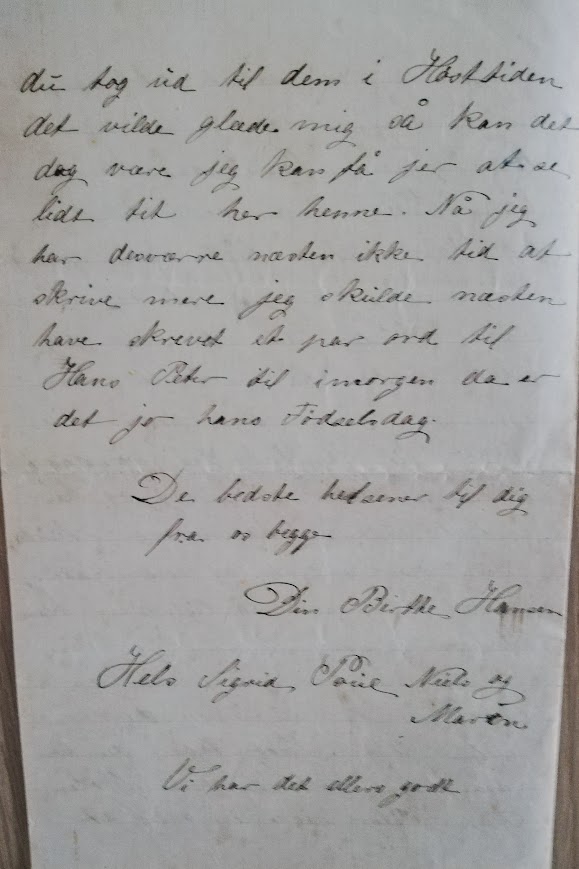 du tog ud til dem i Høsttiden
det vilde glæde mig så kan det
dog være jeg kan få jer at se
lidt tit her henne. Nå jeg
har desværre næsten ikke tid at
skrive mere jeg skulde næsten
have skrevet et par ord til
Hans Peter til imorgen da er
det jo hans Fødselsdag.
De bedste helsener til dig
fra os begge
Din Birthe Hansen
Hels Sigrid Poul Niels og
Maren
Vi har det ellers godt